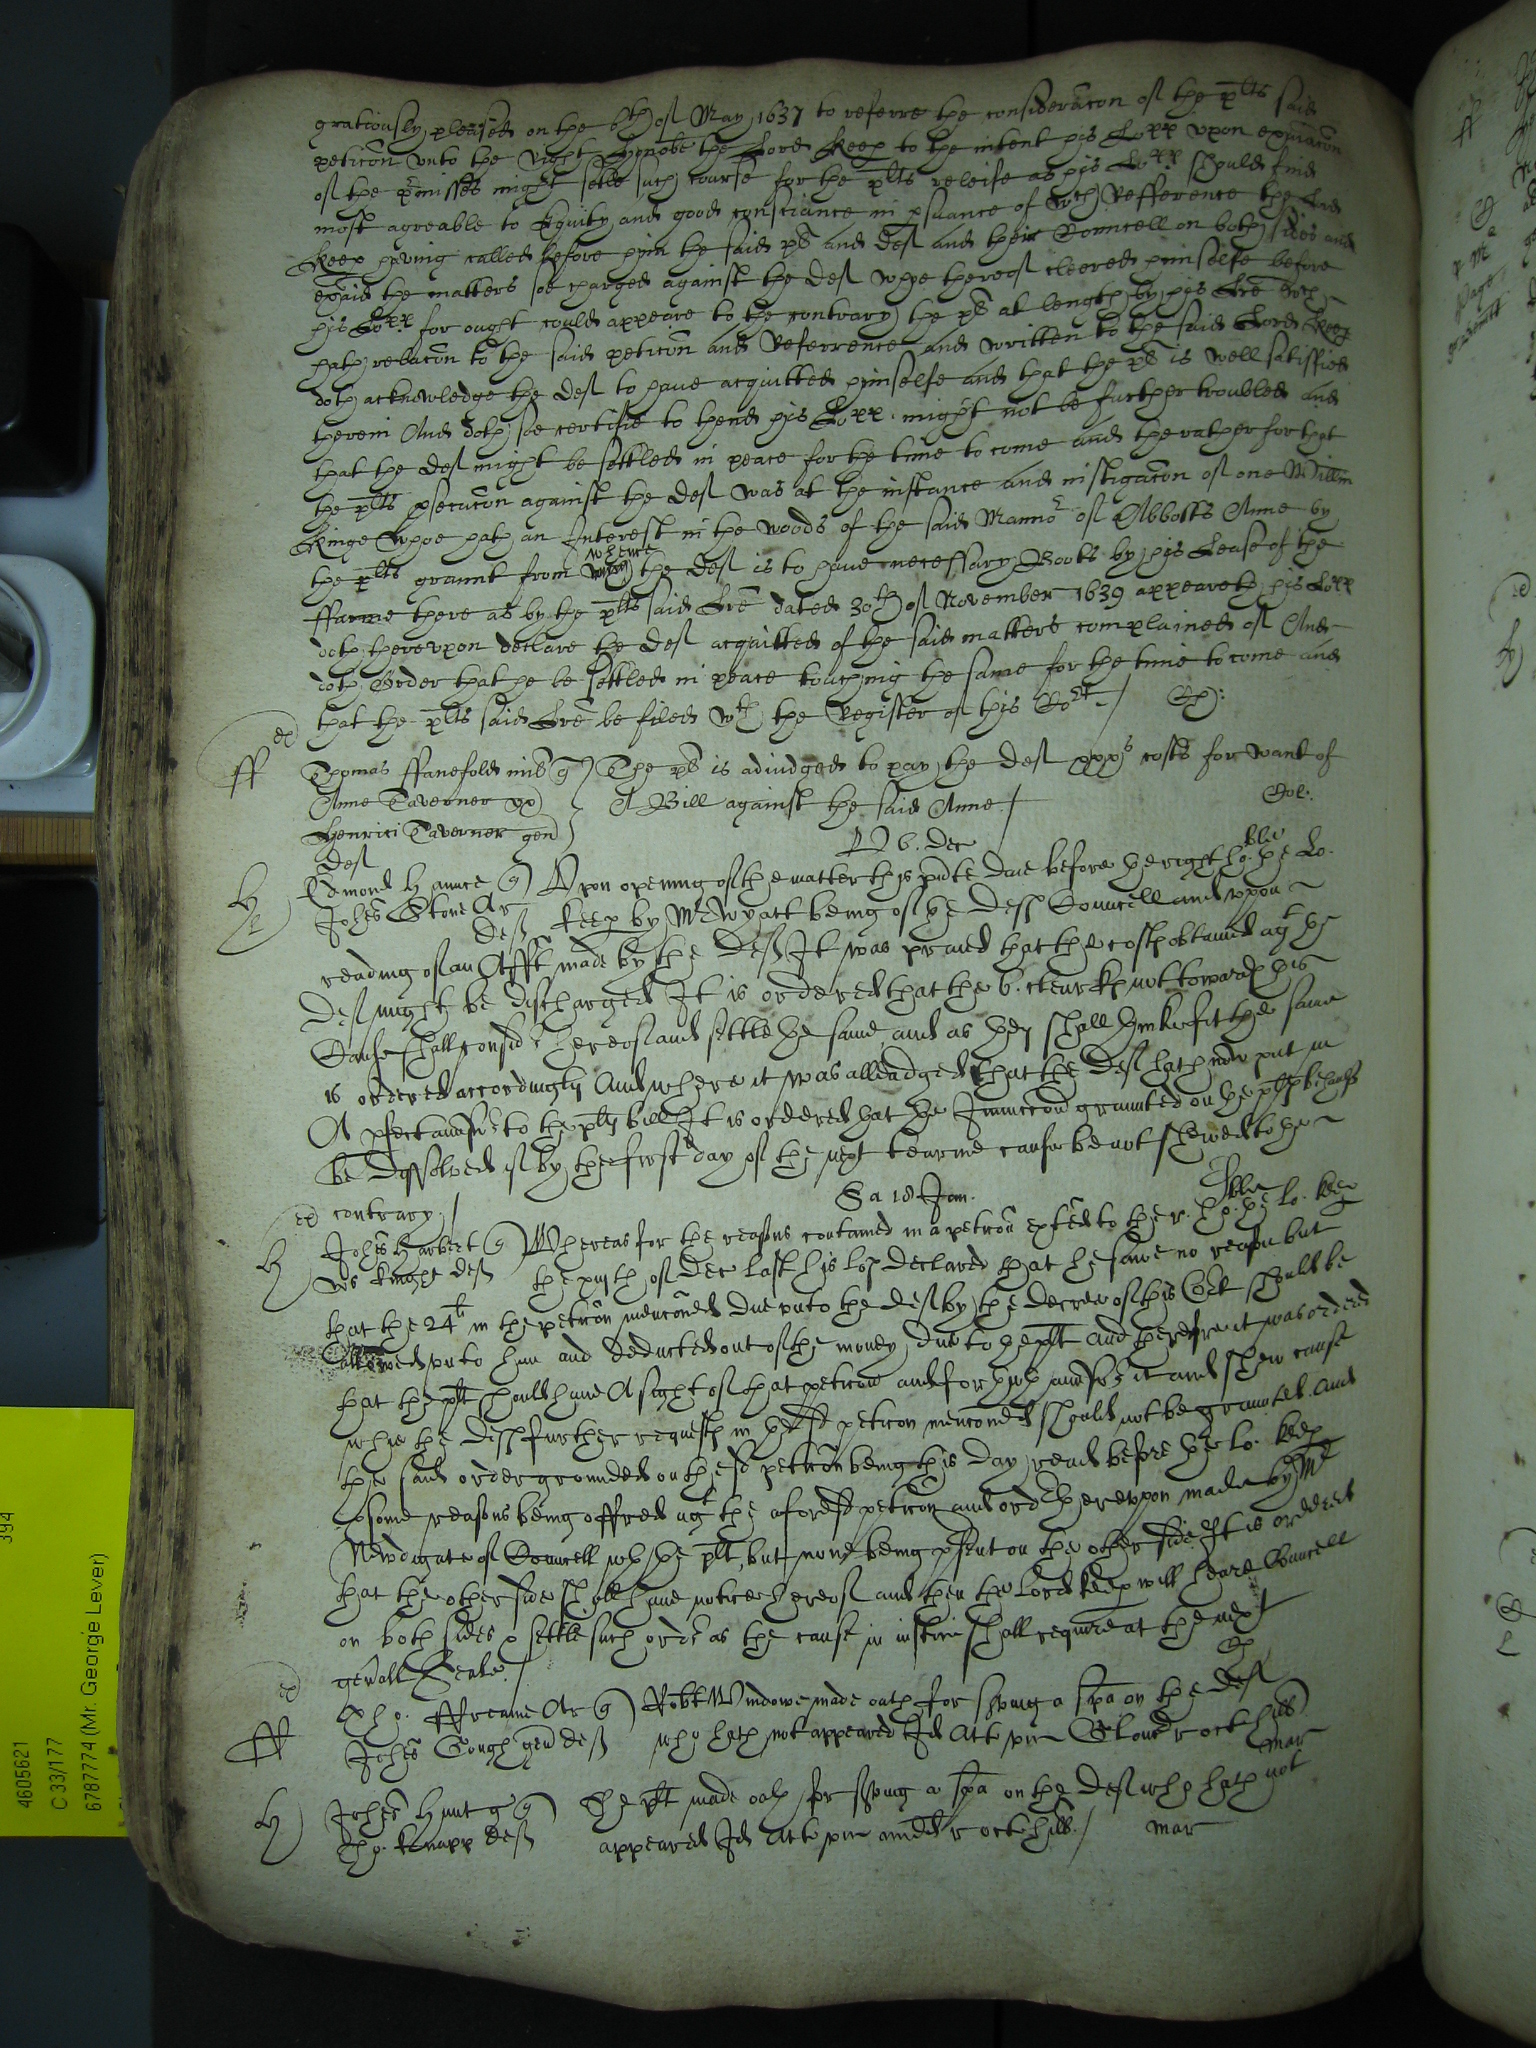 gratiously pleased on the 6th of May 1637 to referre the consideracon of the plts said
peticon vnto the right honoble the Lord Keep to the intent his Lopp vpon exaiacon
of the premisses might settle such course for the plts releife as his Lopp should find
most agreable to Equity and good consciance in psuance of wch Refference the Lord
Keep having called before him the said plt and deft and their Councell on both sides and
exaied the matters soe charged against the deft whoe thereof cleered himselfe before
his Lopp for ought could appeare to the contrary the plt at length by his Lre wch
hath relacon to the said peticon and Referrence and written to the said Lord Keep
doth acknowledge the deft to haue acquitted himselfe and that the plt is well satisfied
therein And doth soe certifie to thend his Lopp might not be further troubled and
that the deft might be settled in peace for the time to come and the rather for that
the plts psecucon against the deft was at the instance and instigacon of one Willm
Kinge whoe hath an Interest in the woods of the said Mannor of Abbotts Anne by
the plts graunt from whence the deft is to haue necessary Boots by his Lease of the
ffarme there as by the plts said Lre dated 30th of November 1639 appeareth his Lopp
doth therevpon declare the deft acquitted of the said matters complained of And
doth Order that he be settled in peace touching the same for the time to come and
that the plts said Lre be filed wth the Register of this Cort
ff Thomas ffanefold The plt is adiudged to pay the deft xxxs costs for want of
Anne Taverner vx A Bill against the said Anne
Henrici Taverner gen
deft
6. Dec
H Edmond Hannce q Vpon opening of the matter this pnte daie before the right hoble the Lo.
Johes Stone Ar deft Keep by Mr Wyatt being of the defts Councell and vpon
reading of an Afft made by the deft It was praied that the costs obtained agt the
deft might be discharged It is ordered that the 6. clearks not towards this
Cause shall consider thereof and settle the same and as they shall thinke fit the same
is ordered accordingly And where it was alleadged that the deft hath now put in
A pfect answr to the plts bill It is ordered that the Iniuccon graunted on the plts behalfe
be dissolved if by the first day of the next tearme cause be not shewed to the
contrary
Sa 18 Jan.
H Johes Harbert q Whereas for the reasons contained in a peticon exhited to the r. hoble the lo. keep
Ws Knight deft the of Dec last his lop declared that he sawe no reason but
that the 24li in the peticon menconed due vnto the deft by the decree of this Cort should be
allowed vnto him and deducted out of the money due to the plt And therefore it was ordered
that the plt should haue A sight of that peticon and forthwth answer it and shew cause
why the defts further requests in the sd peticon mencioned should not be graunted. And
the said order grounded on the sd peticon being this day read before the lo. keep
& some reasons being offred agt the aforesd peticon and order therevpon made by Mr
Newdigate of Councell wth the plt, but none being psent on the other side It is ordered
that the other side shall haue notice hereof and then the Lord Keep will heare Councell
on both sides & settle such order as the cause in iustice shall require at the next
genall Seale
ff Tho. ffreame Ar q Robt Windowe made oath for sving a spa on the deft
Johes Gough gen deft who hath not appeared Id Att vr Glouc r oct hill
mar
H Johes Hunt q The plt made oath for sving a spa on the deft who hath not
Tho. Knapp deft appeared Id att vr midd r oct hill. mar
394
4605621
C 33/177
6787774 (Mr. George Lever)